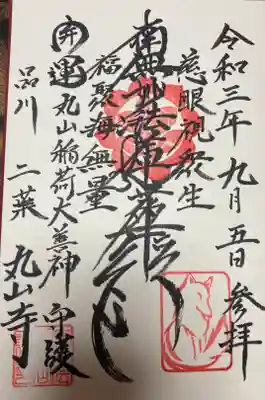 令和三年九月五日参拝
慈眼視衆生
南無妙法蓮華経
福聚海無量
開運丸山稲荷大善神 守護
品川 二葉 丸山寺